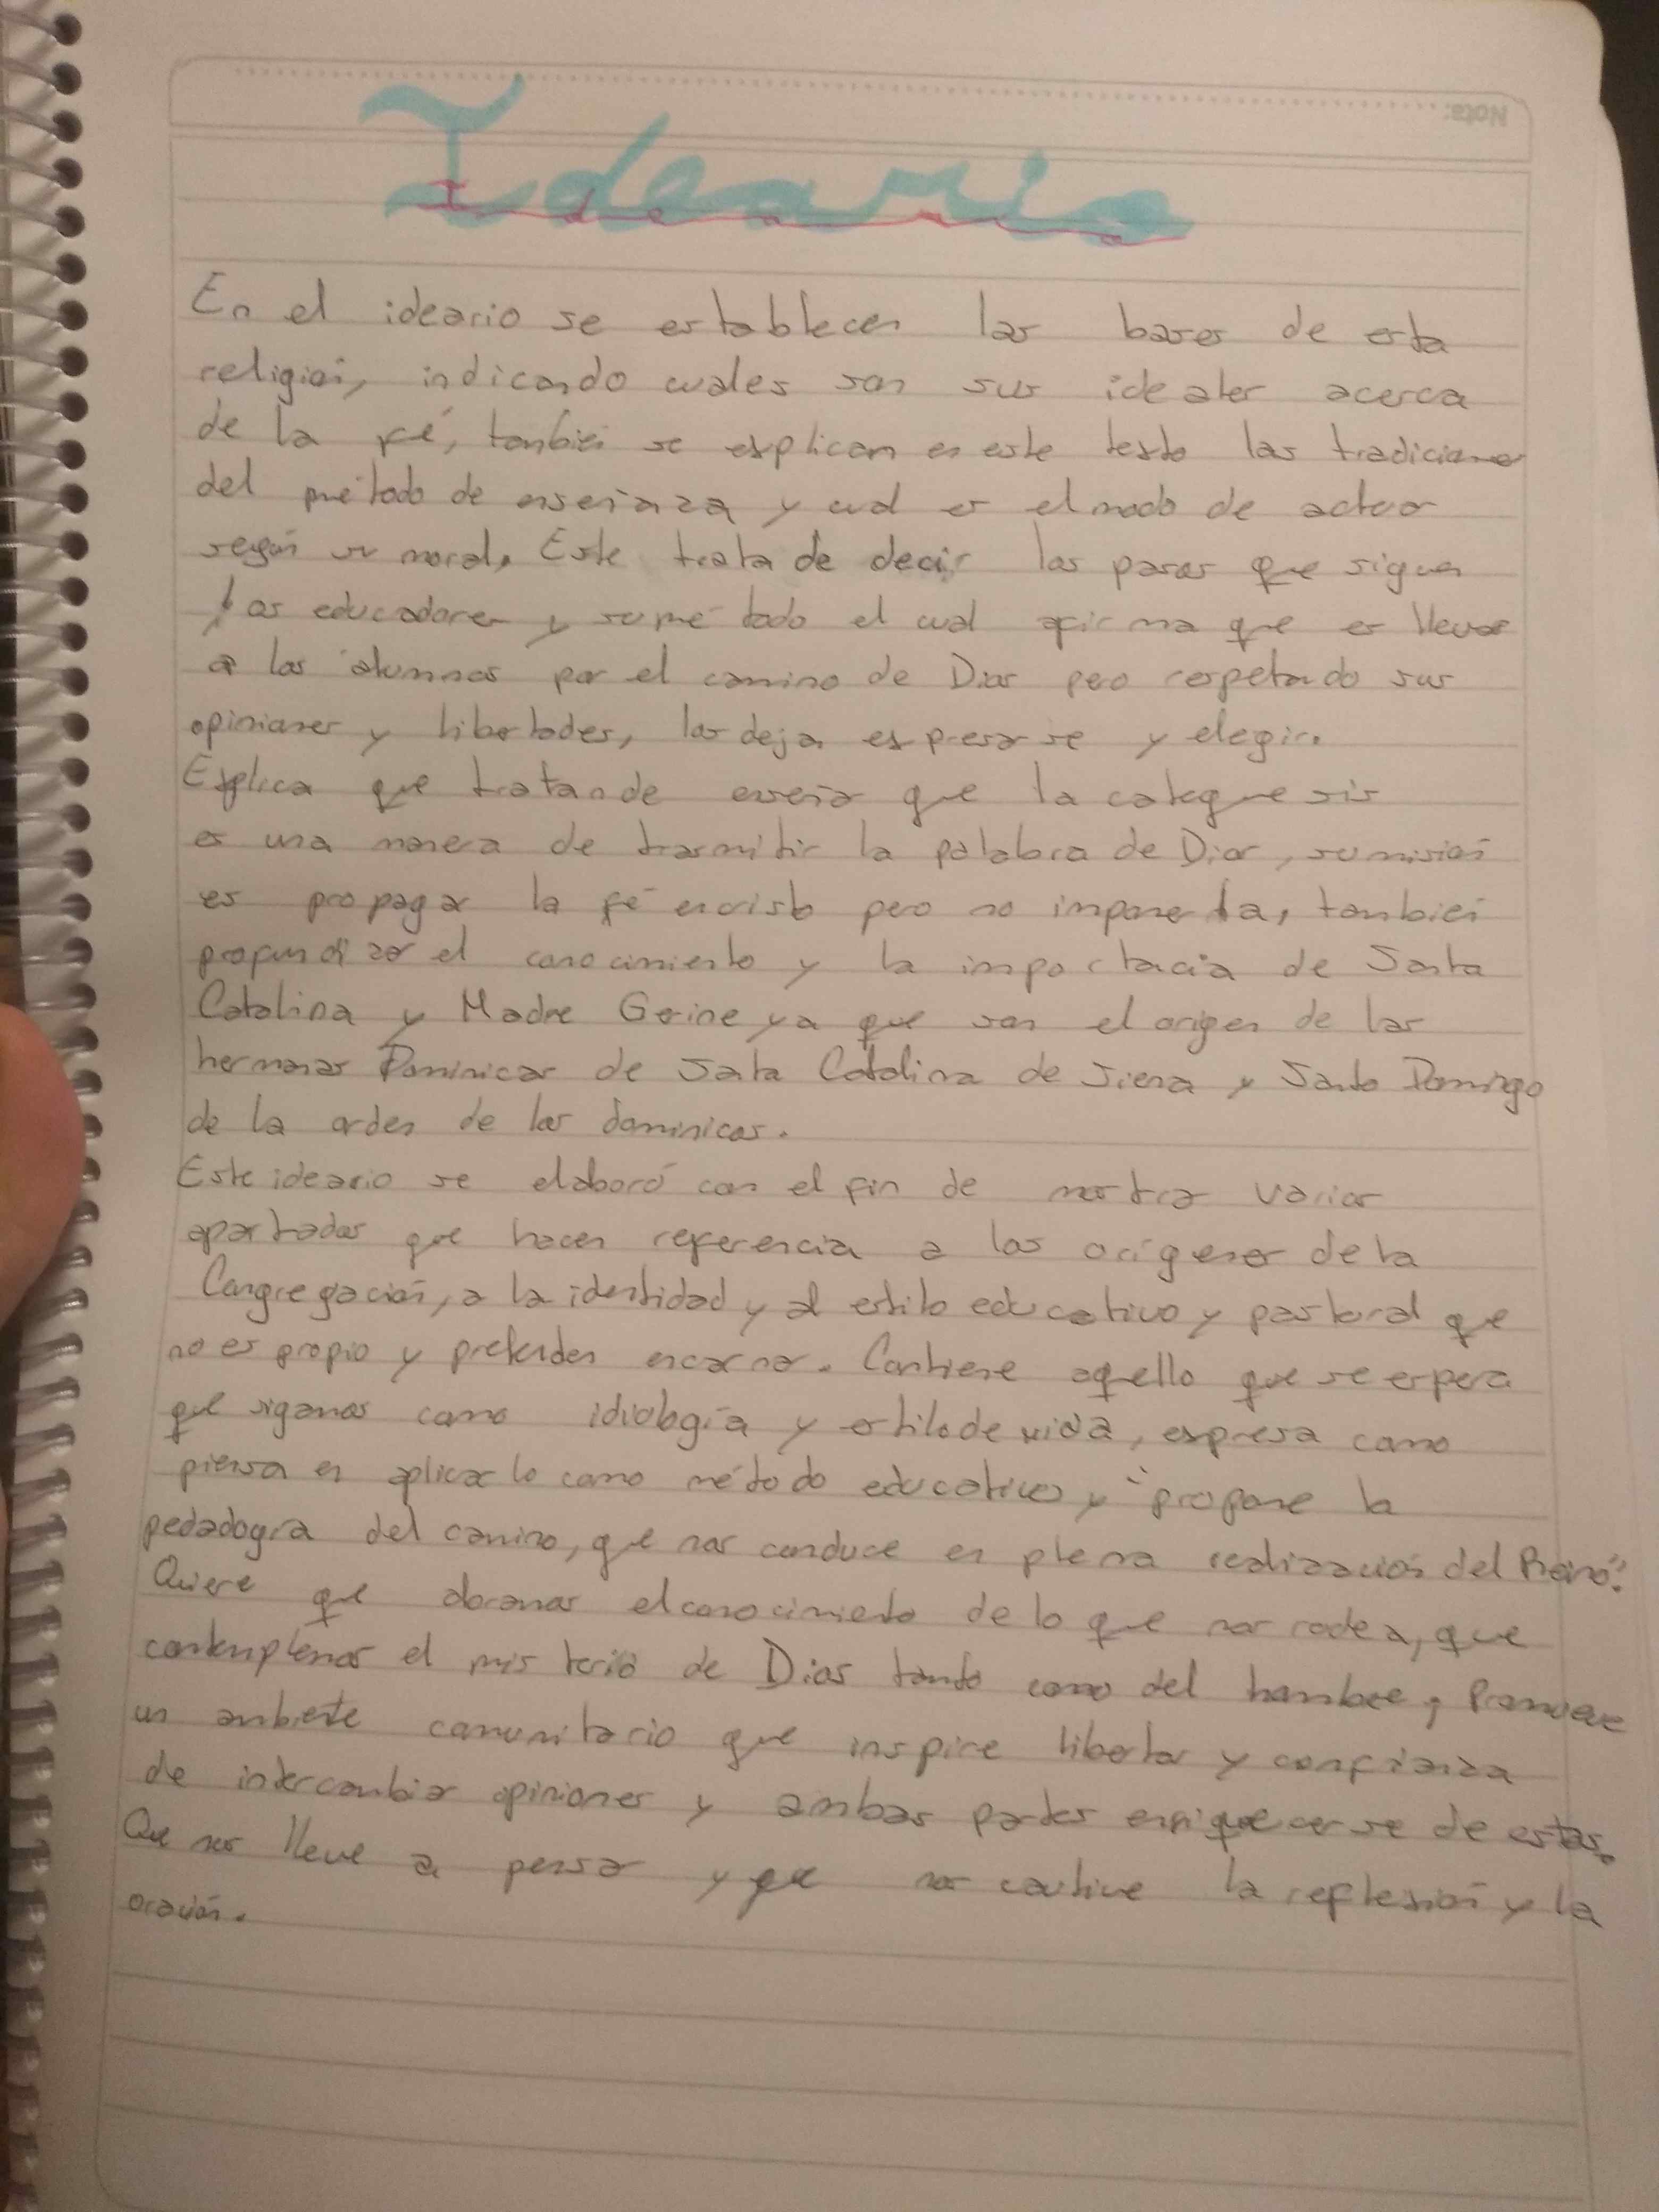 Nota:
Ideario
En el ideario se establecen las bases de esta
religión, indicando cuales son sus ideales acerca
de la fé, también se explican en este texto las tradiciones
del método de enseñanza y cual es el modo de actuar
según su moral. Este trata de decir los pasos que siguen
los educadores y su método el cual afirma que es llevar
a los alumnos por el camino de Dios pero respetando sus
opiniones y libertades, los deja expresarse y elegir.
Explica que tratan de enseñar que la catequesis
es una manera de trasmitir la palabra de Dios, su misión
es propagar la fé en cristo pero no imponerla, también
profundizar el conocimiento y la importancia de Santa
Catalina y Madre Gerine ya que son el origen de las
hermanas Dominicas de Santa Catalina de Siena y Santo Domingo
de la orden de los dominicos.
Este ideario se elaboró con el fin de mostrar varios
apartados que hacen referencia a los orígenes de la
Congregación, a la identidad y al estilo educativo y pastoral que
no es propio y pretenden encarnar. Contiene aquello que se espera
que sigamos como idiología y estilo de vida, expresa como
piensa en aplicarlo como método educativo y "propone la
pedadogía del camino, que nos conduce en plena realización del Reino".
Quiere que abramos el conocimiento de lo que nos rodea, que
contemplemos el misterio de Dios tanto como del hombre, Promueve
un ambiente comunitario que inspire libertar y confianza
de intercambiar opiniones y ambas partes enriquecerse de estas.
Que nos lleve a pensar y que nos cautive la reflexión y la
oración.